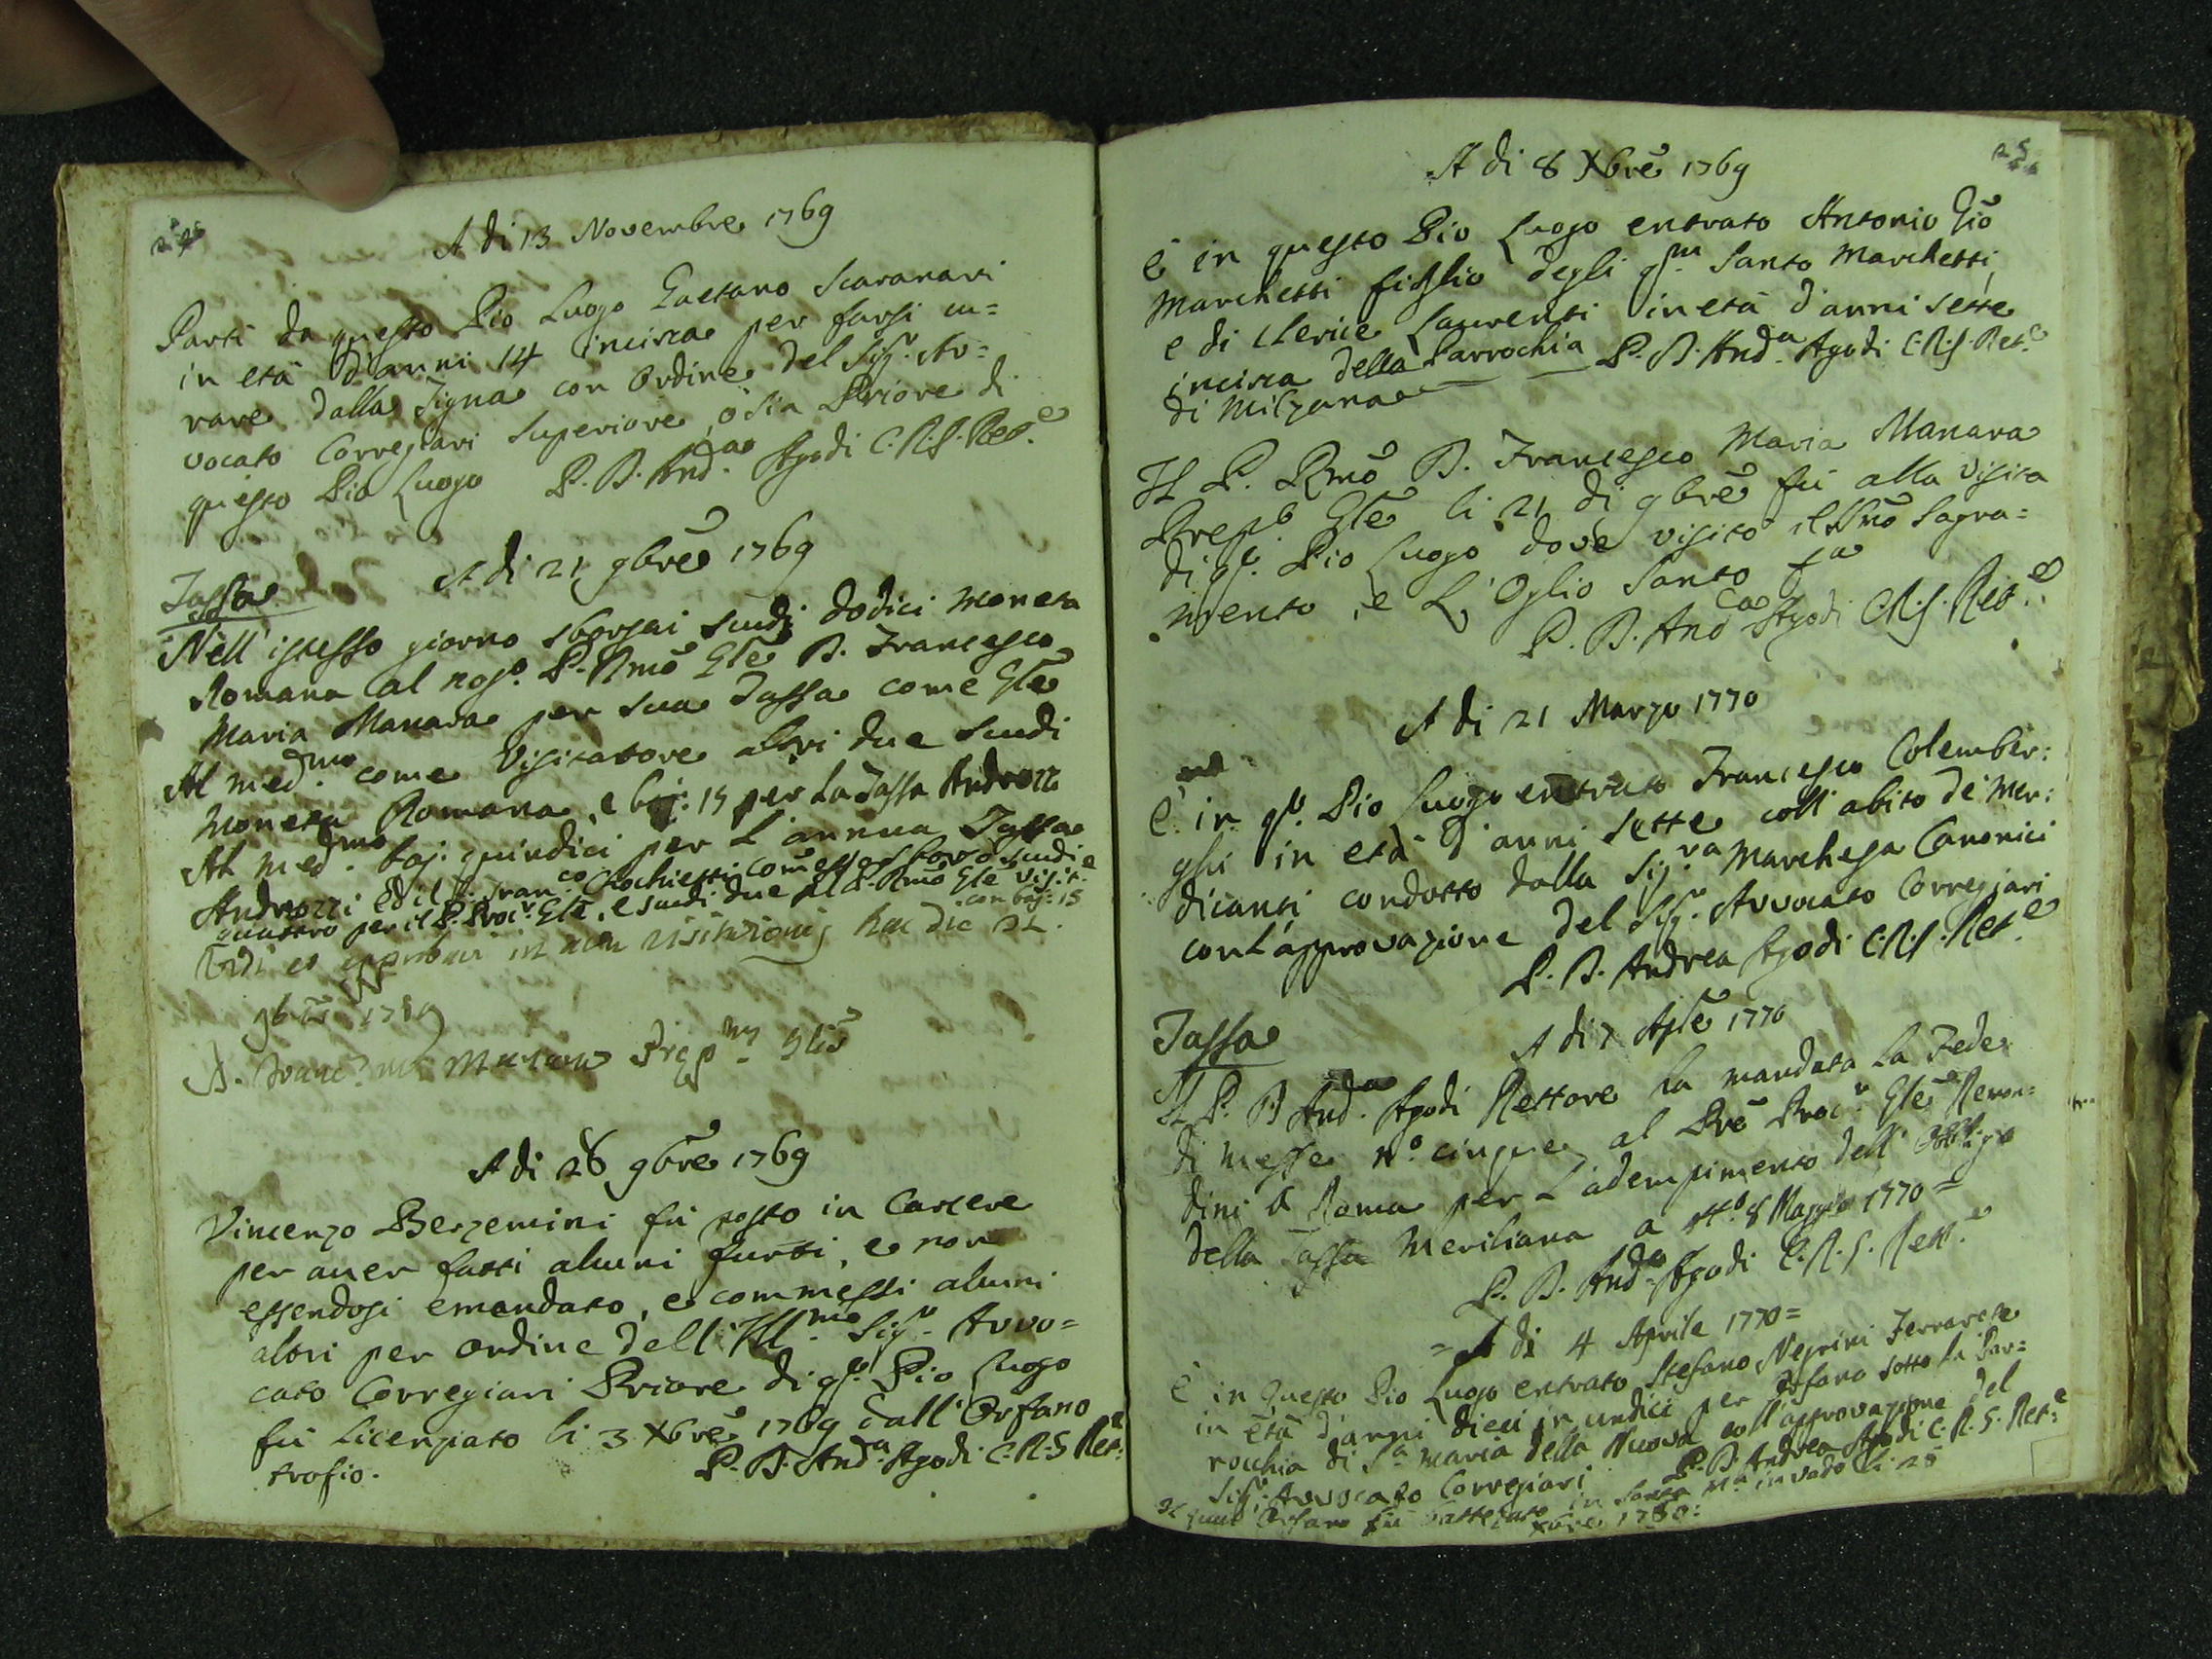 A di 13 Novembre 1769
Partì da questo Pio Luogo Gaetano Scaranari
in età d'anni 14 incirca per farsi cu=
rare dalla Tigna con Ordine del Sig.r Av=
vocato Corregiari Superiore, ò sia Priore di
questo Pio Luogo P. D. And.a Agodi C.R.S. Ret.e
A di 21 9bre 1769
Tassa
Nell' istesso giorno sborsai scudi dodici moneta
Romana al nos.o P. Rmo Gle D. Francesco
Maria Manara per sua Tassa come Gle
Al med.mo come Visitatore altri due scudi
moneta Romana, e baj: 15 per La Tassa Androzzi
Al med.mo baj: quindici per L'annua Tassa
Androzzi ed il P. Fran.co Chochietti Comesso sborsò scudi
quattro per il P. Proc.r Gle, e scudi due pel P. Rmo Gle Visit.e
con baj: 15
Vidi et approbavi in actu visitationis hac die 21.
9bris 1769
D. Franc.s M.a Manara Prep.tus Glis
A di 28 9bre 1769
Vincenzo Berzemini fù posto in Carcere
per aver fatti alcuni furti, e non
essendosi emendato, e commessi alcuni
altri per ordine dell' Ill.mo Sig.r Avvo=
cato Corregiari Priore di qs.o Pio Luogo
fù Licenziato li 3 Xbre 1769 dall' Orfano
trofio. P. D. And.a Agodi C.R.S Ret.e
25
A di 8 Xbre 1769
È in questo Pio Luogo entrato Antonio Gio
Marchetti figlio degli qm Santo Marchetti,
e di Clerice Laurenti in età d'anni sette
incirca della Parrochia P. D. And.a Agodi C.R.S. Ret.e
di Milzana
Il P. Rmo D. Francesco Maria Manara
Prep.o Gle li 21 di 9bre fù alla visita
di qs.o Pio Luogo dove visitò il SSmo Sagra=
mento, e L'Oglio Santo
P. D. And.a Agodi C.R.S. Ret.e
A di 21 Marzo 1770
È in qs.o Pio Luogo entrato Francesco Colember:
ghi in età d'anni sette coll' abito de' Men:
dicanti condotto dalla Sig.ra Marchesa Canonici
con L'approvazione del Sig.r Avvocato Corregiari
P. D. Andrea Agodi C.R.S. Ret.e
Tassa
A di 7 Aple 1770
Il P. D And.a Agodi Rettore ha mandata La Fede
di messe n.o cinque al Pre Proc.r Gle Remon:
dini a Roma per L'adempimento dell' obbligo
della Tassa Meriliana a tt.o 8 Maggio 1770=
P. D. And.a Agodi C.R.S. Rett.e
= A di 4 Aprile 1770=
È in questo Pio Luogo entrato Stefano Negrini Ferrarese
in età d'anni dieci in undici per Orfano sotto la Par=
rochia di S.a Maria della Nuova coll' approvazione del
Sig.r Avvocato Corregiari P. D. Andrea Agodi C.R.S. Ret.e
Orfano fù battezzato in Santa M.a in vado li 25
Xbre 1780: